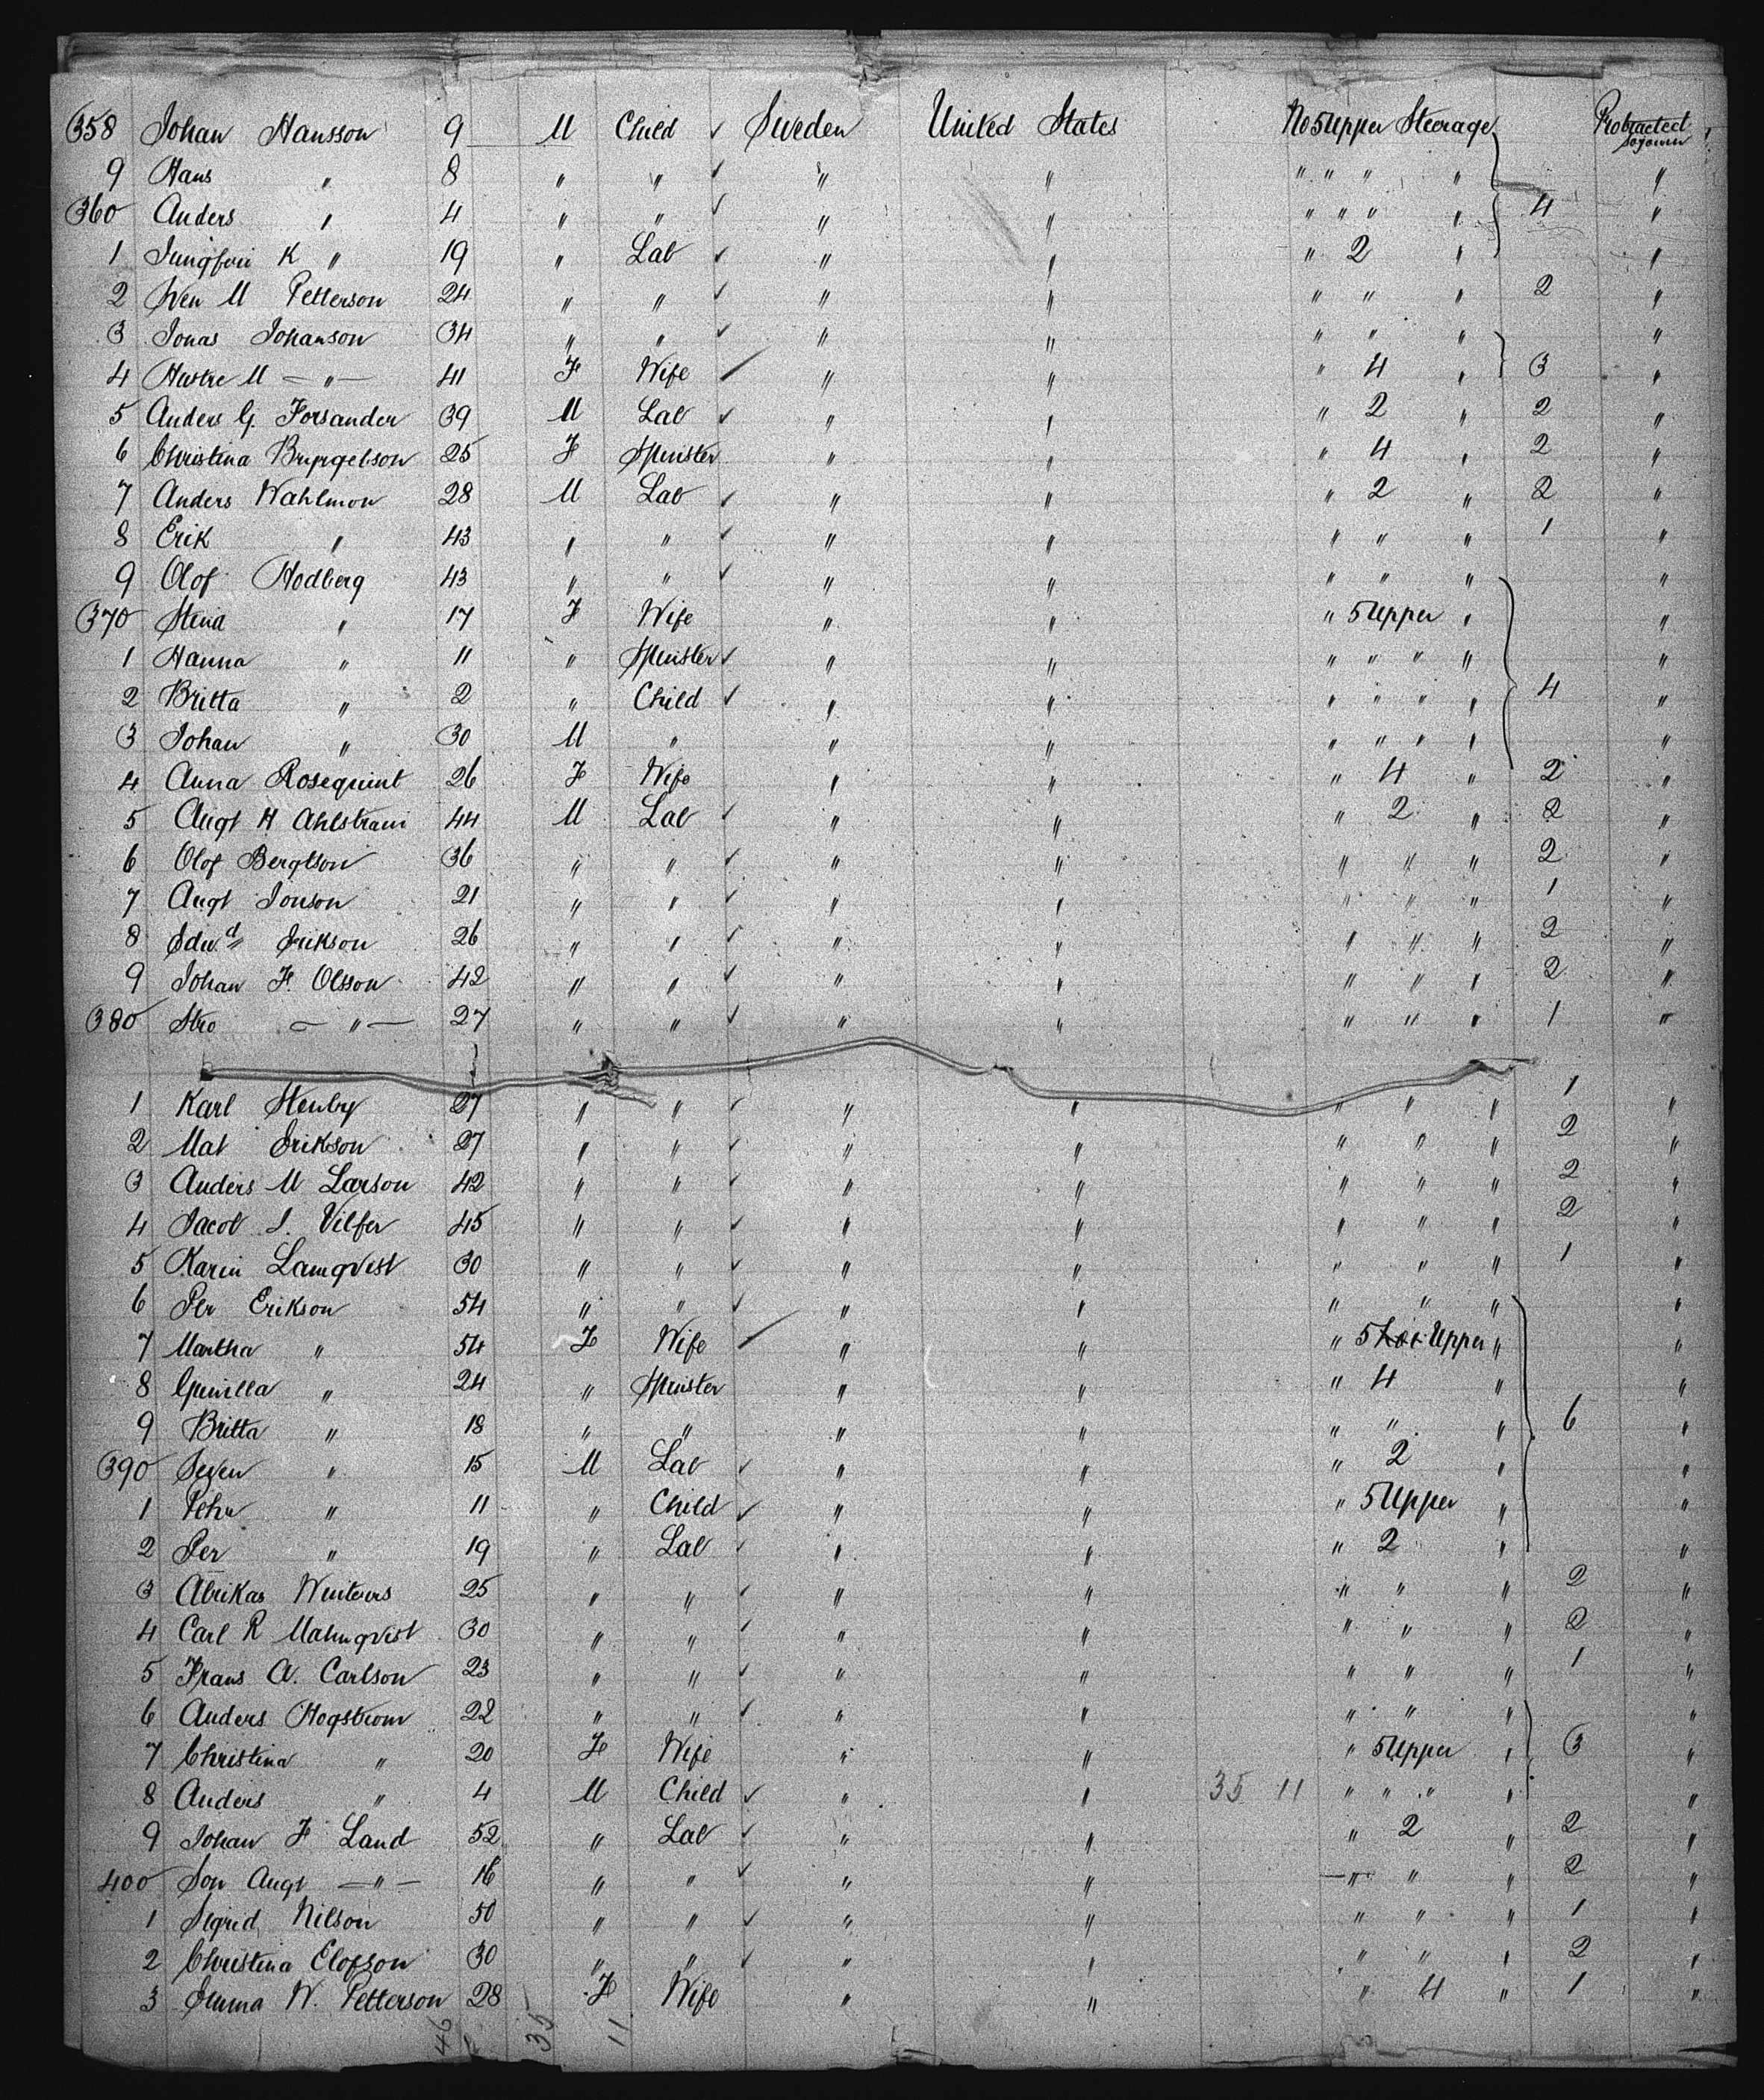 358 Johan Hansson 9 M Child ✓ Sweden United States No 5 Upper Steerage Protracted sojourn
9 Hans " 8 " " ✓ " " " " " " "
360 Anders " 4 " " ✓ " " " " " " 4 "
1 K " 19 " Lab ✓ " " " 2 " "
2 Sven M Petterson 24 " " ✓ " " " " " 2 "
3 Jonas Johanson 34 " " ✓ " " " " " "
4 M — " — 41 F Wife ✓ " " " 4 " 3 "
5 Anders G. Forsander 39 M Lab ✓ " " " 2 " 2 "
6 Christina 25 F Spinster " " " 4 " 2 "
7 Anders Wahlmon 28 M Lab ✓ " " " 2 " 2 "
8 Erik " 43 " " ✓ " " " " " 1 "
9 Olof Hodberg 43 " " ✓ " " " " " "
370 Stina " 17 F Wife " " " 5 Upper " "
1 Hanna " 11 " Spinster ✓ " " " " " " "
2 Britta " 2 " Child ✓ " " " " " " 4 "
3 Johan " 30 M " " " " " " " "
4 Anna Rosequint 26 F Wife " " " 4 " 2 "
5 Augt H Ahlstram 44 M Lab ✓ " " " 2 " 2 "
6 Olof Bergtson 36 " " ✓ " " " " " 2 "
7 Augt Jonson 21 " " ✓ " " " " " 1 "
8 Edwd Erikson 26 " " ✓ " " " " " 2 "
9 Johan F. Olsson 42 " " ✓ " " " " " 2 "
380 Stro — " — 27 " " ✓ " " " " " 1 "
1 Karl Stenby 27 " " ✓ " " " " " 1 "
2 Mat Erikson 27 " " ✓ " " " " " 2 "
3 Anders M Larson 42 " " ✓ " " " " " 2 "
4 Jacob J. Vilfer 45 " " ✓ " " " " " 2 "
5 Karin Lamqvist 30 " " ✓ " " " " " 1 "
6 Per Erikson 54 " " ✓ " " " " " "
7 Martha " 54 F Wife ✓ " " " 5 Upper " "
8 Gunilla " 24 " Spinster " " " 4 " "
9 Britta " 18 " " " " " " " 6 "
390 Seven " 15 M Lab ✓ " " " 2 " "
1 Pehr " 11 " Child ✓ " " " 5 Upper " "
2 Per " 19 " Lab ✓ " " " 2 " "
3 25 " " ✓ " " " " " 2 "
4 Carl R Malmqvist 30 " " ✓ " " " " " 2 "
5 Frans A. Carlson 23 " " ✓ " " " " " 1 "
6 Anders Hogstrom 22 " " ✓ " " " " " "
7 Christina " 20 F Wife " " " 5 Upper " 3 "
8 Anders " 4 M Child ✓ " " 35 11 " " " " "
9 Johan F Land 52 " Lab ✓ " " " 2 " 2 "
400 Son Augt — " — 16 " " ✓ " " — " — " 2 "
1 Sigrid Nilson 50 " " ✓ " " " " " 1 "
2 Christina Elofson 30 " " ✓ " " " " " 2 "
3 Emma W. Petterson 28 F Wife " " " 4 " 1 "
46 35 11